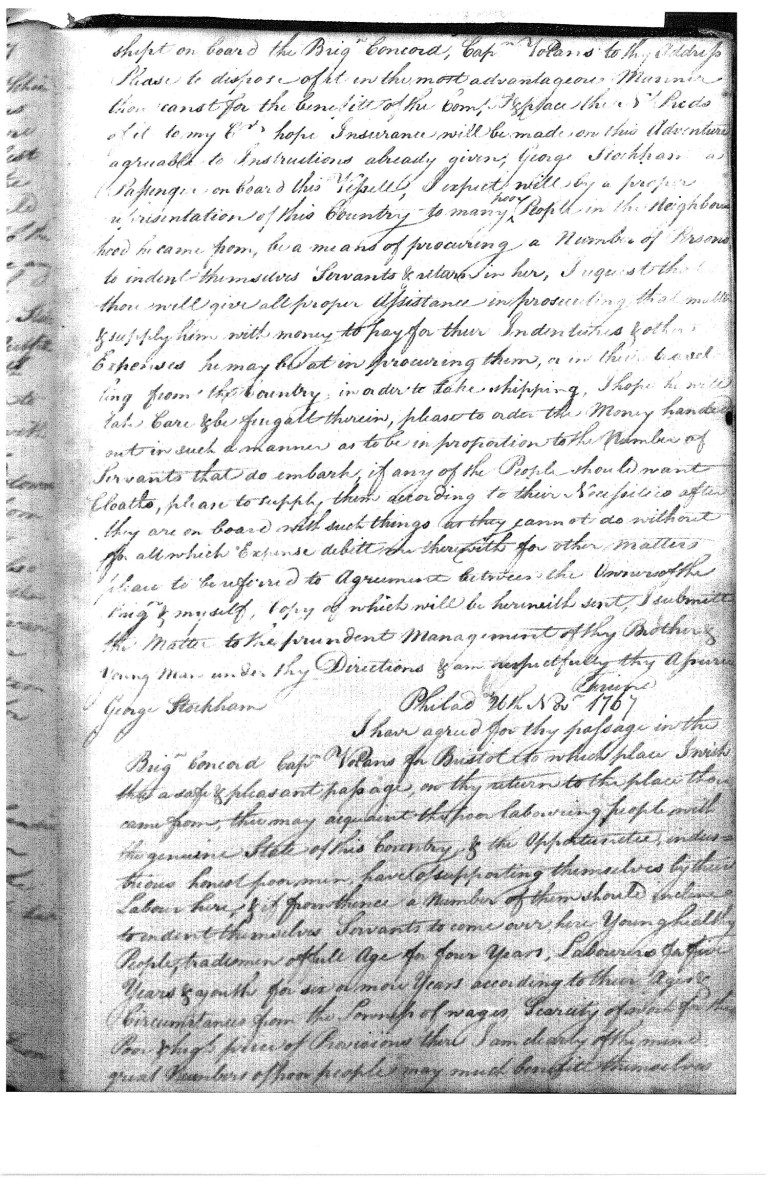 shipt on board the Brign Concord, Capn Volans to thy Address
Please to dispose of it in the most advantageous Manner
thou canst for the benefitt of the Comy. & place the Nt. Proceds
of it to my Ct. hope Insurance will be made on this Adventure
agreable to Instructions already given, George Stockham a
Passenger on board this Vessell, I expect will by a proper
representation of this Country to many poor People in the Neighbour
hood he came from, be a means of procuring a Number of Persons
to indent themselves Servants & return in her, I request that
thou will give all proper Assistance in prosecuting that matter
& supply him with money to pay for their Indentures & other
Expenses he may be at in procuring them, or in their travel
ling from the Country, in order to take shipping, I hope he will
take Care & be frugall therein, please to order the Money handed
out in such a manner as to be in proportion to the Number of
Servants that do embark, if any of the People should want
Cloaths, please to supply them according to their Necessities after
they are on board with such things as they cannot do without
for all which Expense debitt me therewith for other matters
please to be referred to Agreement between the Owners of the
Brign & myself, Copy of which will be herewith sent, I submitt
the Matter to the prundent Management of thy Brother &
Young Man under thy Directions & am respectfully thy Assured
Friend
George Stockham Philad 26th Nov 1767
I have agreed for thy passage in the
Brign Concord Capn Volans for Bristol to which place I wish
thee a safe & pleasant passage, on thy return to the place thou
came from, thee may acquaint the poor labouring people with
the genuine State of this Country, & the Opportunities, indus=
trious honest poor men, have of supporting themselves by their
Labour here, & if from thence a Number of them should incline
to indent themselves Servants to come over here Young healthy
People, tradesmen of full Age for four Years, Labourers for five
Years & youth for six or more Years according to their Ages &
Circumstances from the Lowness of wages, Scarcity of work for the
Poor & high price of Provisions there I am clearly of the mind
great Numbers of poor people may much benefitt themselves